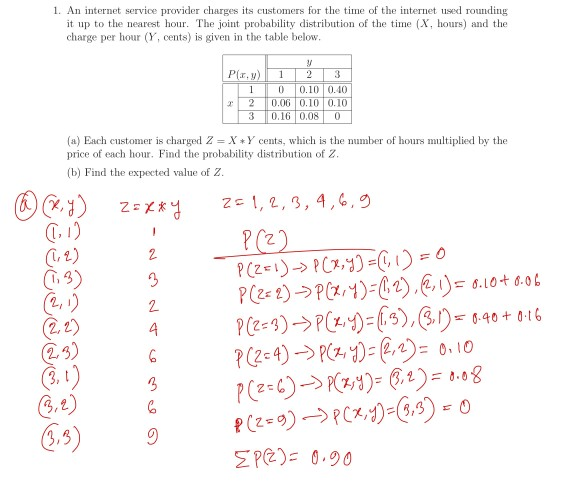 1. An internet service provider charges its customers for the time of the internet used rounding
it up to the nearest hour. The joint probability distribution of the time (X, hours) and the
charge per hour (Y, cents) is given in the table below.
y
P(x, y) 1 2 3
1 0 0.10 0.40
x 2 0.06 0.10 0.10
3 0.16 0.08 0
(a) Each customer is charged Z = X * Y cents, which is the number of hours multiplied by the
price of each hour. Find the probability distribution of Z.
(b) Find the expected value of Z.
(a) (x,y) Z = x * y Z = 1, 2, 3, 4, 6, 9
(1,1) 1 P(Z)
(1,2) 2 P(Z=1) → P(x,y) = (1,1) = 0
(1,3) 3 P(Z=2) → P(x,y) = (1,2), (2,1) = 0.10 + 0.06
(2,1) 2 P(Z=3) → P(x,y) = (1,3), (3,1) = 0.40 + 0.16
(2,2) 4 P(Z=4) → P(x,y) = (2,2) = 0.10
(2,3) 6 P(Z=6) → P(x,y) = (3,2) = 0.08
(3,1) 3 P(Z=9) → P(x,y) = (3,3) = 0
(3,2) 6 ΣP(Z) = 0.90
(3,3) 9